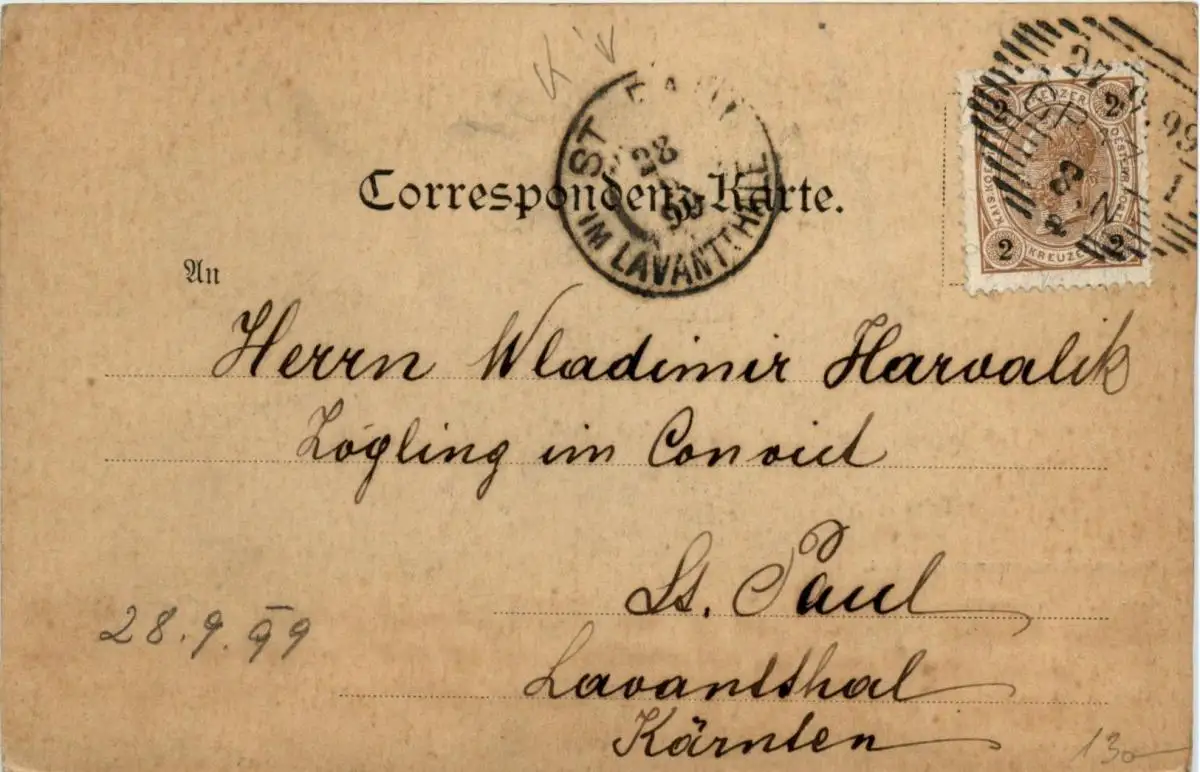 Correspondenz-Karte.
ST. PAUL
28
99
IM LAVANTTHALE
27.9.99
2 KREUZER 2
2 KREUZER 2
An
Herrn Wladimir Harvalik
Zögling im Convict
St. Paul
Lavantthal
Kärnten
28.9.99
130